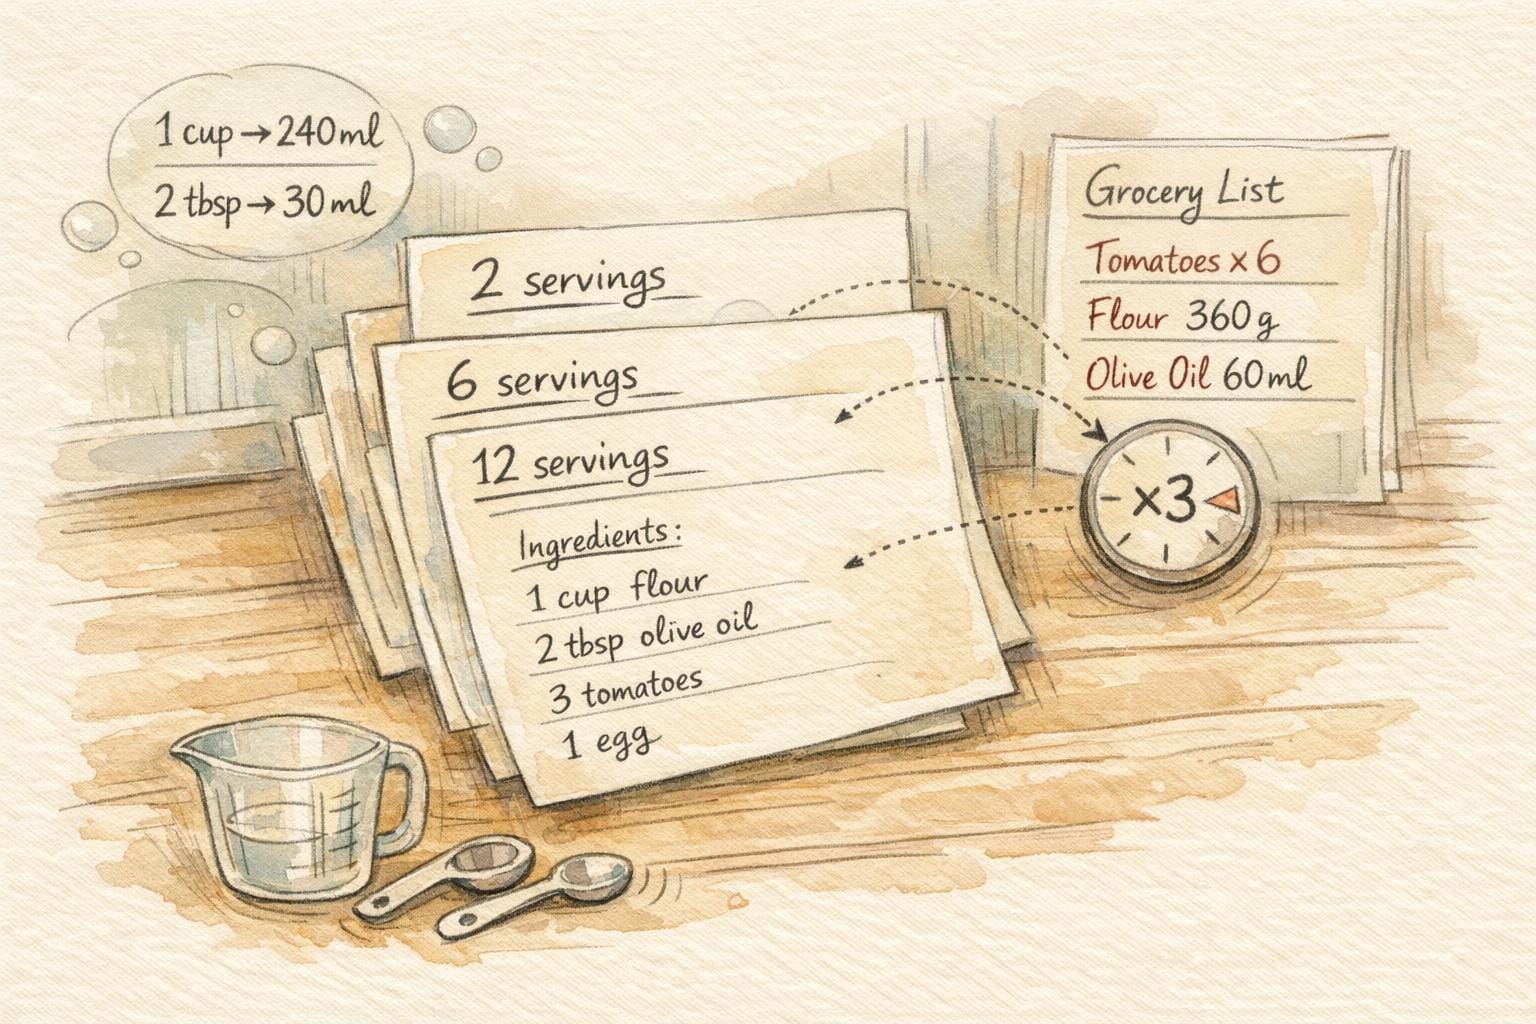 1 cup → 240 ml
2 tbsp → 30 ml
2 servings
6 servings
12 servings
Ingredients:
1 cup flour
2 tbsp olive oil
3 tomatoes
1 egg
Grocery List
Tomatoes x 6
Flour 360 g
Olive Oil 60 ml
x3